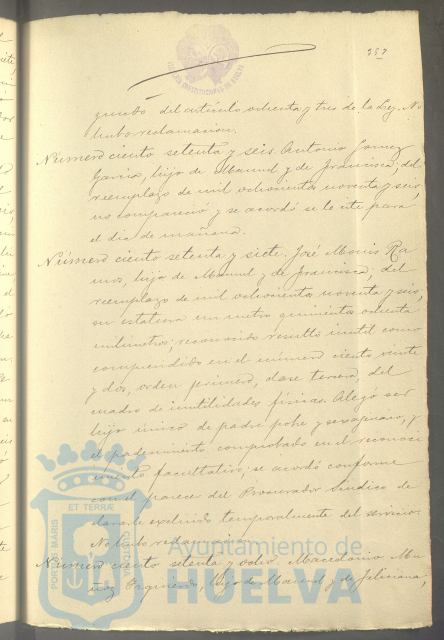 287
quinto del artículo ochenta y tres de la Ley. No
hubo reclamacion.
Número ciento setenta y seis Antonio Gomez
Garcia, hijo de Manuel y de Francisca, del
reemplazo de mil ochocientos noventa y seis,
no compareció y se acordó se le cite para
el dia de mañana.
Número ciento setenta y siete. José Monis Ra
mos, hijo de Manuel y de Francisca, del
reemplazo de mil ochocientos noventa y seis,
su estatura un metro quinientos ochenta
milimetros; reconocido resultó inutil como
comprendido en el número ciento veinte
y dos, orden primero, clase tercera, del
cuadro de inutilidades físicas. Alegó ser
hijo único de padre pobre y sexagenario, y
el padecimiento comprobado en el reconoci
miento facultativo; se acordó conforme
con el parecer del Procurador Síndico de
clararle excluido temporalmente del servicio.
No hubo reclamacion.
Número ciento setenta y ocho Macedonio Mu
ñoz Izquierdo, hijo de Manuel y de Feliciana,
PORTUS MARIS
ET TERRÆ
CUSTODIA
Ayuntamiento de
HUELVA